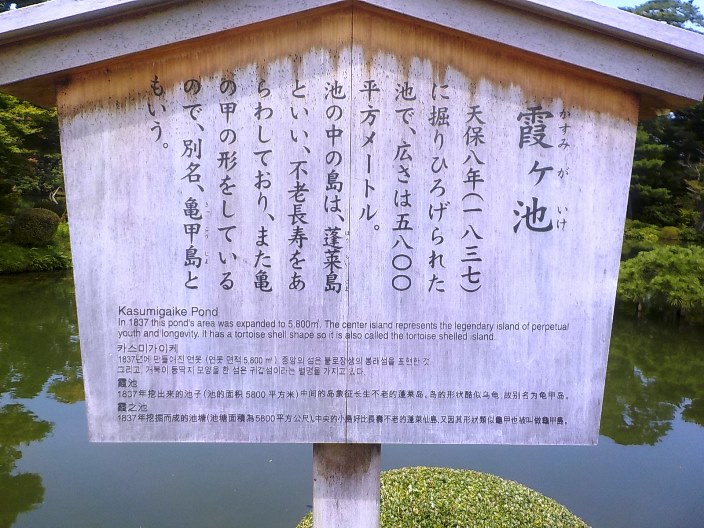 霞ヶ池
かすみ が いけ
天保八年(一八三七)
に掘りひろげられた
池で、広さは五八〇〇
平方メートル。
池の中の島は、蓬莱島
といい、不老長寿をあ
らわしており、また亀
の甲の形をしている
ので、別名、亀甲島と
もいう。
Kasumigaike Pond
In 1837 this pond's area was expanded to 5,800㎡. The center island represents the legendary island of perpetual
youth and longevity. It has a tortoise shell shape so it is also called the tortoise shelled island.
카스미가이케
1837년에 만들어진 연못 (연못 면적 5,800 ㎡). 중앙의 섬은 불로장생의 봉래섬을 표현한 것.
그리고, 거북이 등딱지 모양을 한 섬은 귀갑섬이라는 별명을 가지고 있다.
霞池
1837年挖出来的池子(池的面积 5800 平方米)中间的岛象征长生不老的蓬莱岛。岛的形状酷似乌龟,故别名为龟甲岛。
霞之池
1837年挖掘而成的池塘(池塘面積為5800平方公尺)。中央的小島好比長壽不老的蓬萊仙島,又因其形狀類似龜甲也被叫做龜甲島。